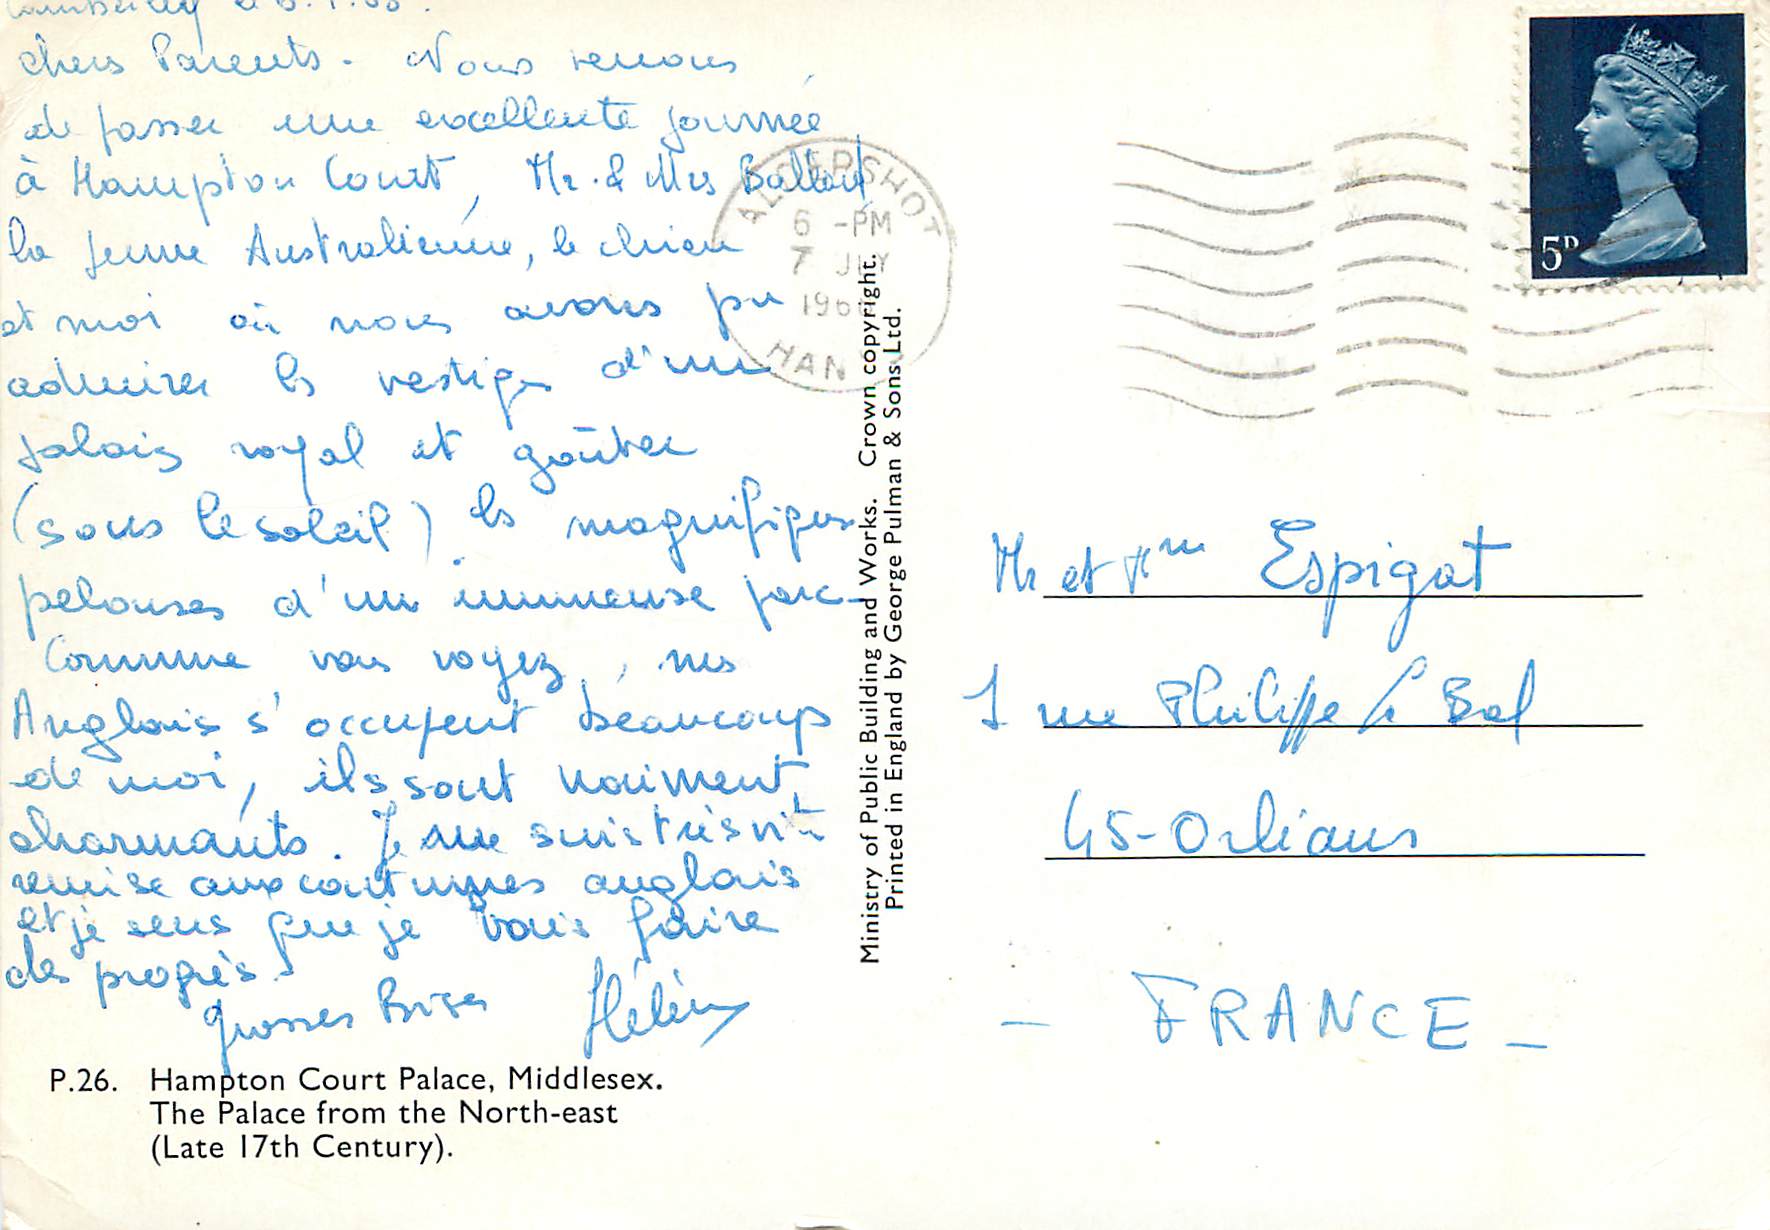 chers Parents - Nous venons
de passer une excellente journée
à Hampton Court, Mr. & Mrs
la jeune Australienne, le chien
et moi où nous avons pu
admirer les vestiges d'un
palais royal et goûter
(sous le soleil) les magnifiques
pelouses d'un immense parc -
Comme vous voyez, mes
Anglais s'occupent beaucoup
de moi, ils sont vraiment
charmants. Je me suis très vite
remise aux coutumes anglais
et je sens que je vais faire
des progrès.
Grosses Bises Hélène
P.26. Hampton Court Palace, Middlesex.
The Palace from the North-east
(Late 17th Century).
Ministry of Public Building and Works. Crown copyright.
Printed in England by George Pulman & Sons Ltd.
ALDERSHOT
6 -PM
7 JLY
HANTS
5D
Mr et Mme Espigat
1 rue Philippe le Bel
45-Orléans
- FRANCE -